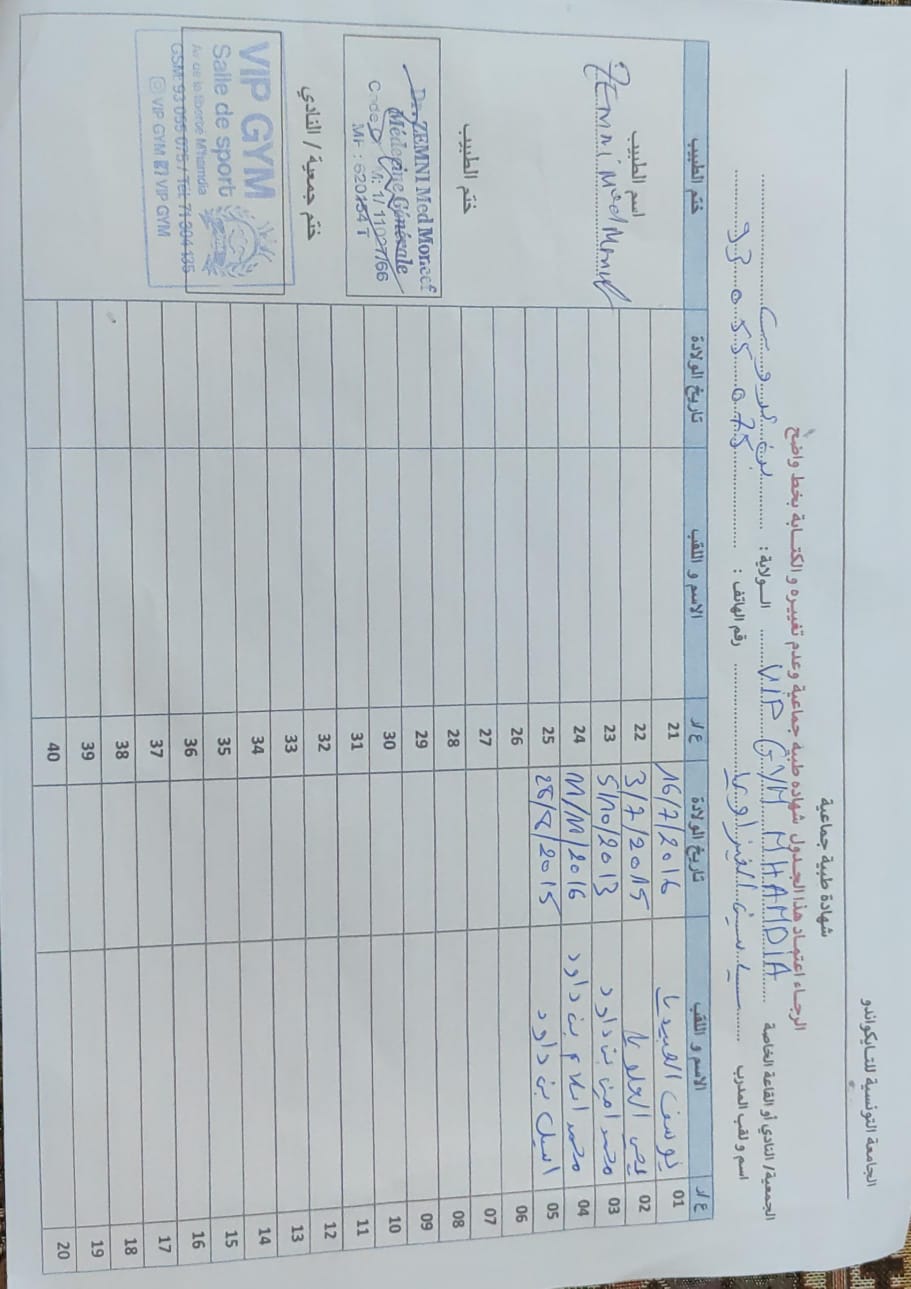 الجامعة التونسية للتايكواندو
شهادة طبية جماعية
الرجاء اعتماد هذا الجدول شهادة طبية جماعية وعدم تغييره و الكتابة بخط واضح
الجمعية/ النادي أو القاعة الخاصة VIP GYM MHAMDIA الولاية : بن عروس
اسم و لقب المدرب رقم الهاتف : 93 055 075
ع/ر الاسم و اللقب تاريخ الولادة ع/ر الاسم و اللقب تاريخ الولادة ختم الطبيب
01 يوسف العبيدي 16/7/2016 21
02 يحي 3/7/2015 22
03 محمد امين بن داود 5/10/2013 23
04 محمد اسلام بن داود 11/11/2016 24
05 اسيل بن داود 28/8/2015 25
06 26
07 27
08 28
09 29
10 30
11 31
12 32
13 33
14 34
15 35
16 36
17 37
18 38
19 39
20 40
اسم الطبيب
ZEMNI Med Moncef
ختم الطبيب
Dr. ZEMNI Med Moncef
Médecine Générale
Code 1/11027/66
MF: 620154 T
ختم جمعية / النادي
VIP GYM
Salle de sport
Av de la liberté M'hamdia
GSM: 93 055 075 / Tél: 71 304 135
VIP GYM VIP GYM